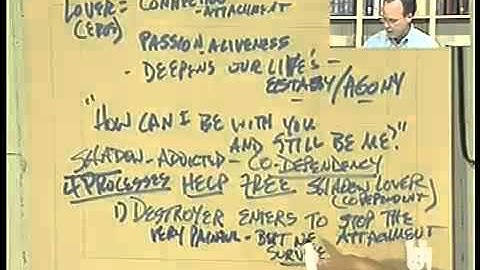 LOVER = CONNECTION
(EROS) -ATTACHMENT
PASSION-ALIVENESS
- DEEPENS OUR LIFE'S-
ECSTASY/AGONY
"HOW CAN I BE WITH YOU
AND STILL BE ME?"
SHADOW-ADDICTED - CO-DEPENDENCY
PROCESSES HELP FREE SHADOW LOVER
(CODEPENDENT)
1) DESTROYER ENTERS TO STOP THE
ATTACHMENT
VERY PAINFUL - BUT WE
SURV